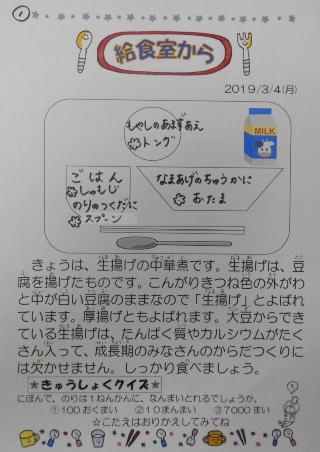 ①
給食室から
2019/3/4(月)
もやしのあまずあえ
トング
MILK
ごはん
しゃもじ
のりのつくだに
スプーン
なまあげのちゅうかに
おたま
きょうは、生揚げの中華煮です。生揚げは、豆
腐を揚げたものです。こんがりきつね色の外がわ
と中が白い豆腐のままなので「生揚げ」とよばれ
ています。厚揚げともよばれます。大豆からでき
ている生揚げは、たんぱく質やカルシウムがたく
さん入って、成長期のみなさんのからだつくりに
は欠かせません。しっかり食べましょう。
★きゅうしょくクイズ★
にほんで、のりは1ねんかんに、なんまいとれるでしょうか。
①100おくまい ②10まんまい ③7000まい
☆こたえはおりかえしてみてね